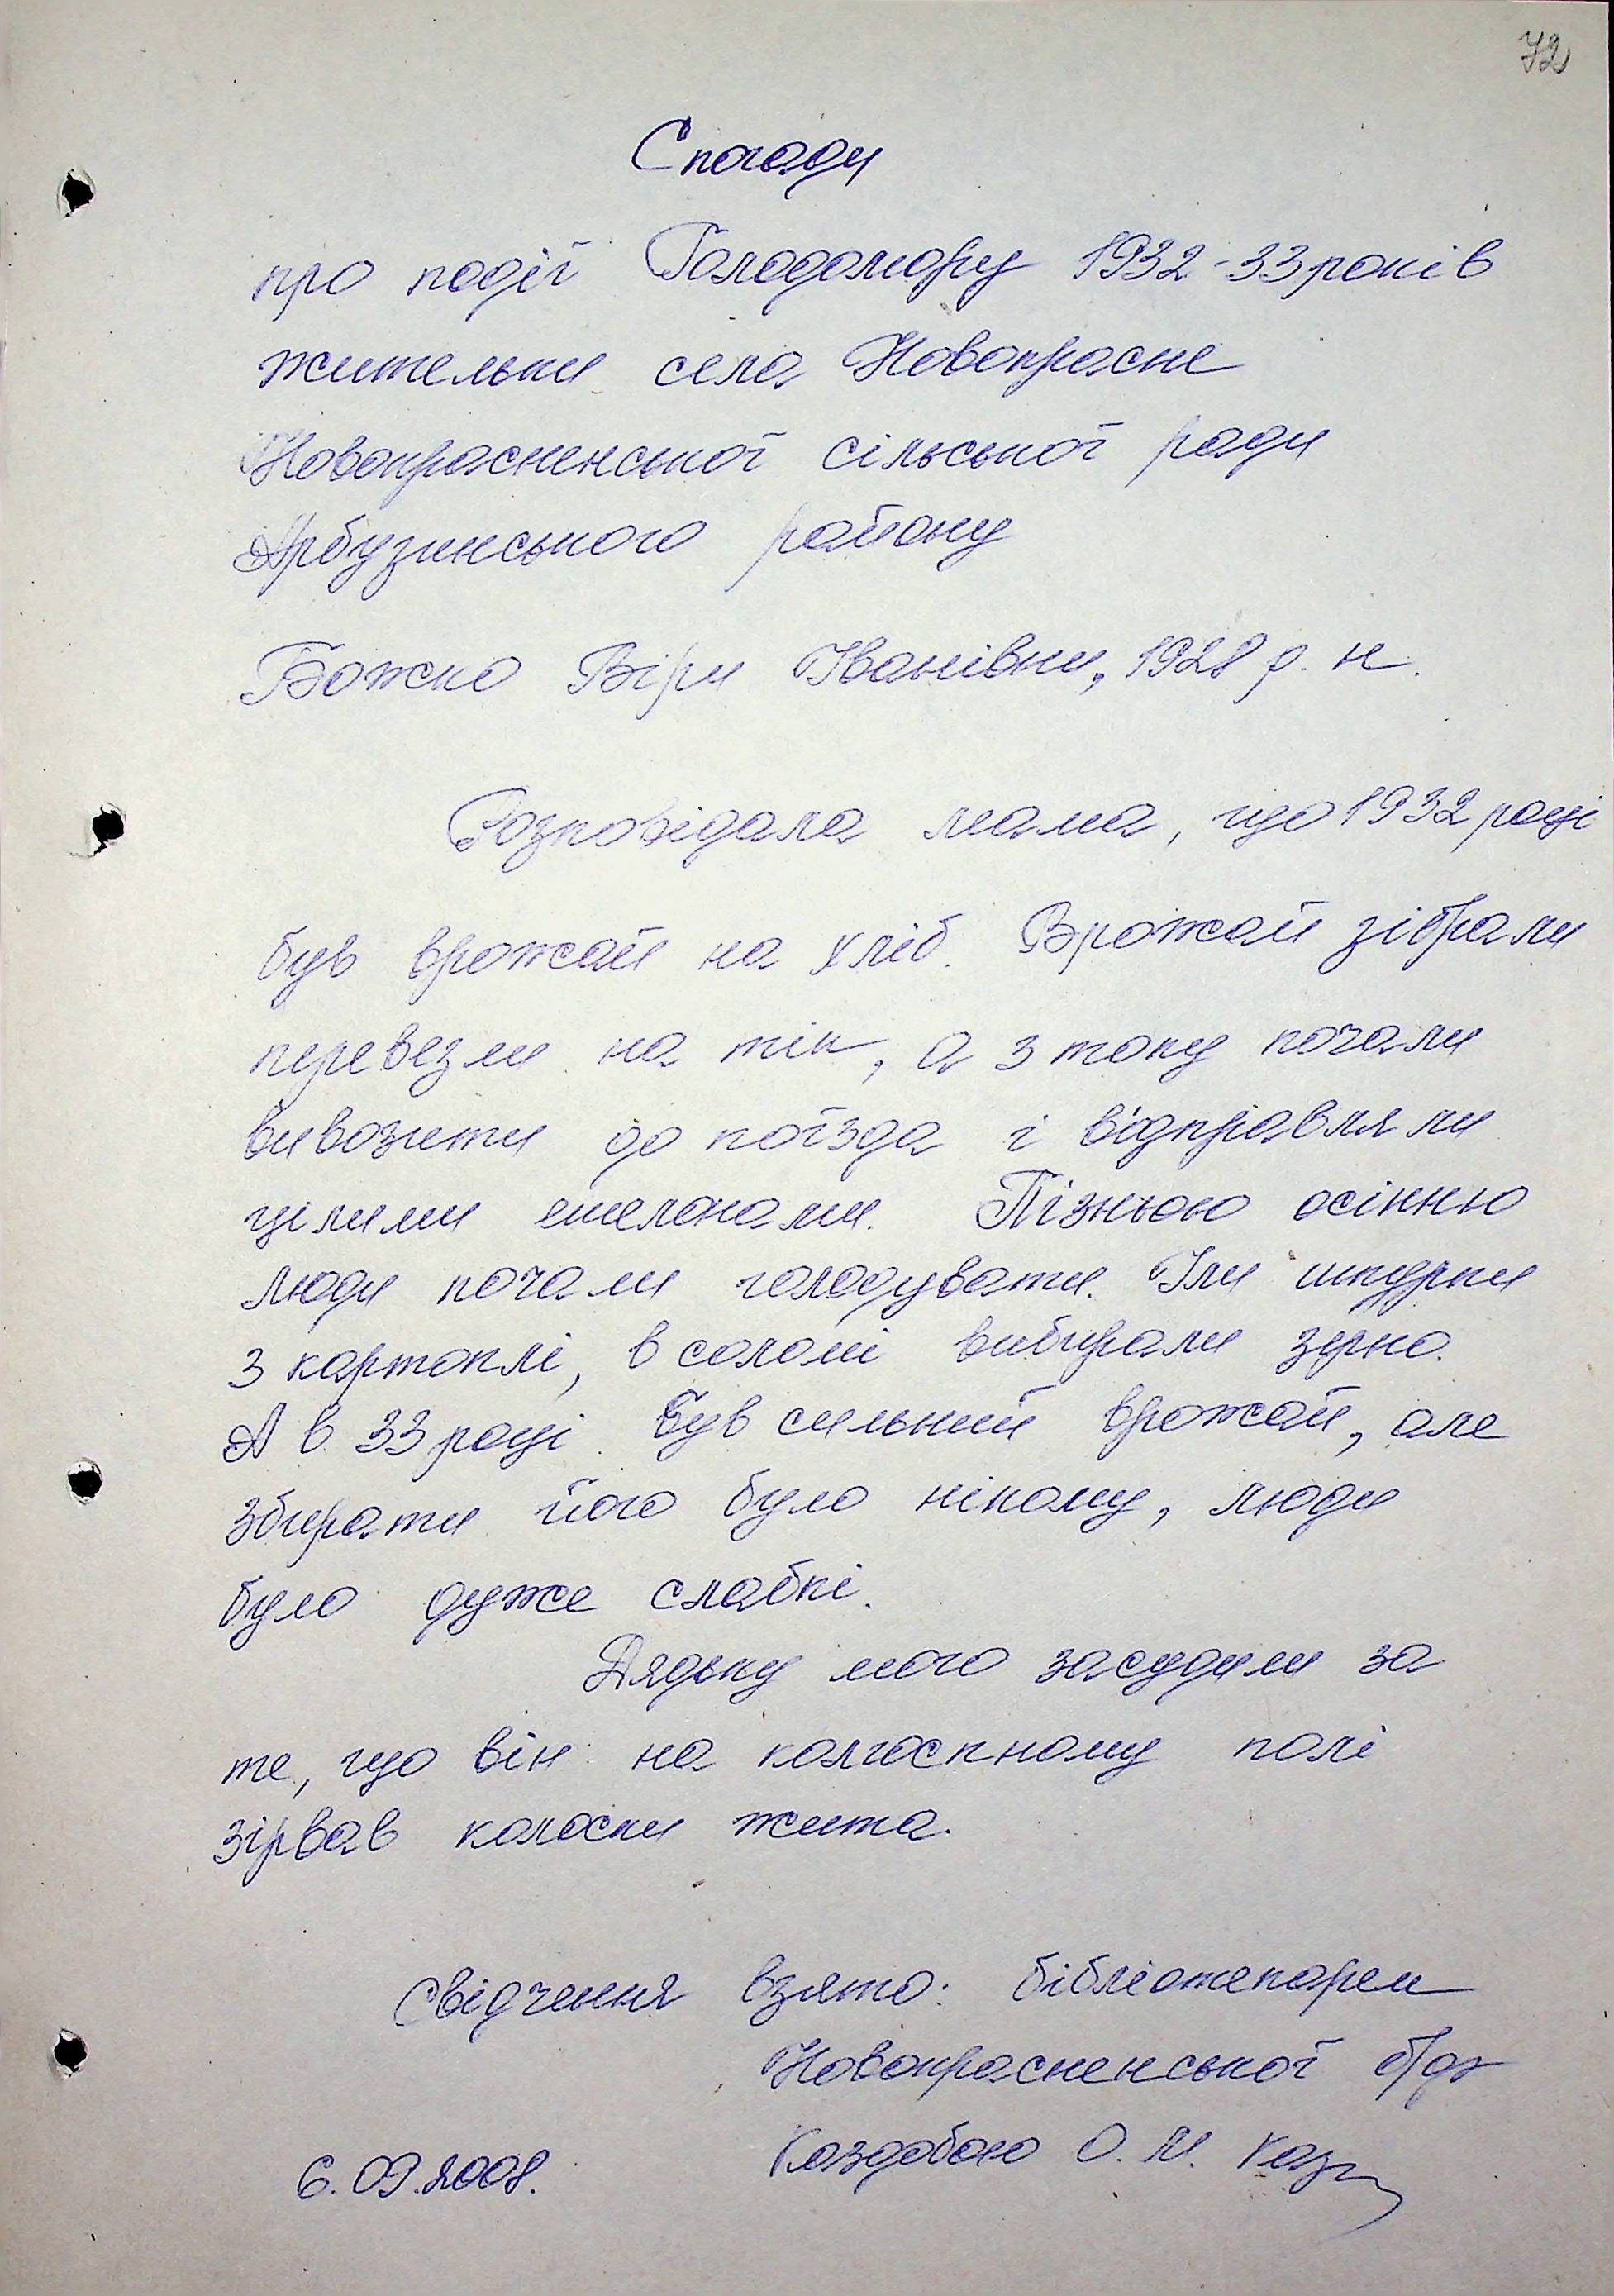 72
Спогади
про події Голодомору 1932-33 років
жительки села Новокрасне
Новокрасненської сільської ради
Арбузинського району
Божко Віри Іванівни, 1928 р. н.
Розповідала мама, що 1932 році
був врожай на хліб. Врожай зібрали
перевезли на тік, а з току почали
вивозити до поїзда і відправляли
цілими ешелонами. Пізньою осінню
люди почали голодувати. Їли шкурки
з картоплі, в соломі вибирали зерно.
А в 33 році був сильний врожай, але
збирати його було нікому, люди
було дуже слабкі.
Дядьку мого засудили за
те, що він на колгоспному полі
зірвав колоски жита.
Свідчення взято: бібліотекарем
Новокрасненської б/ф
Каздобою О. М.
6.09.2008.